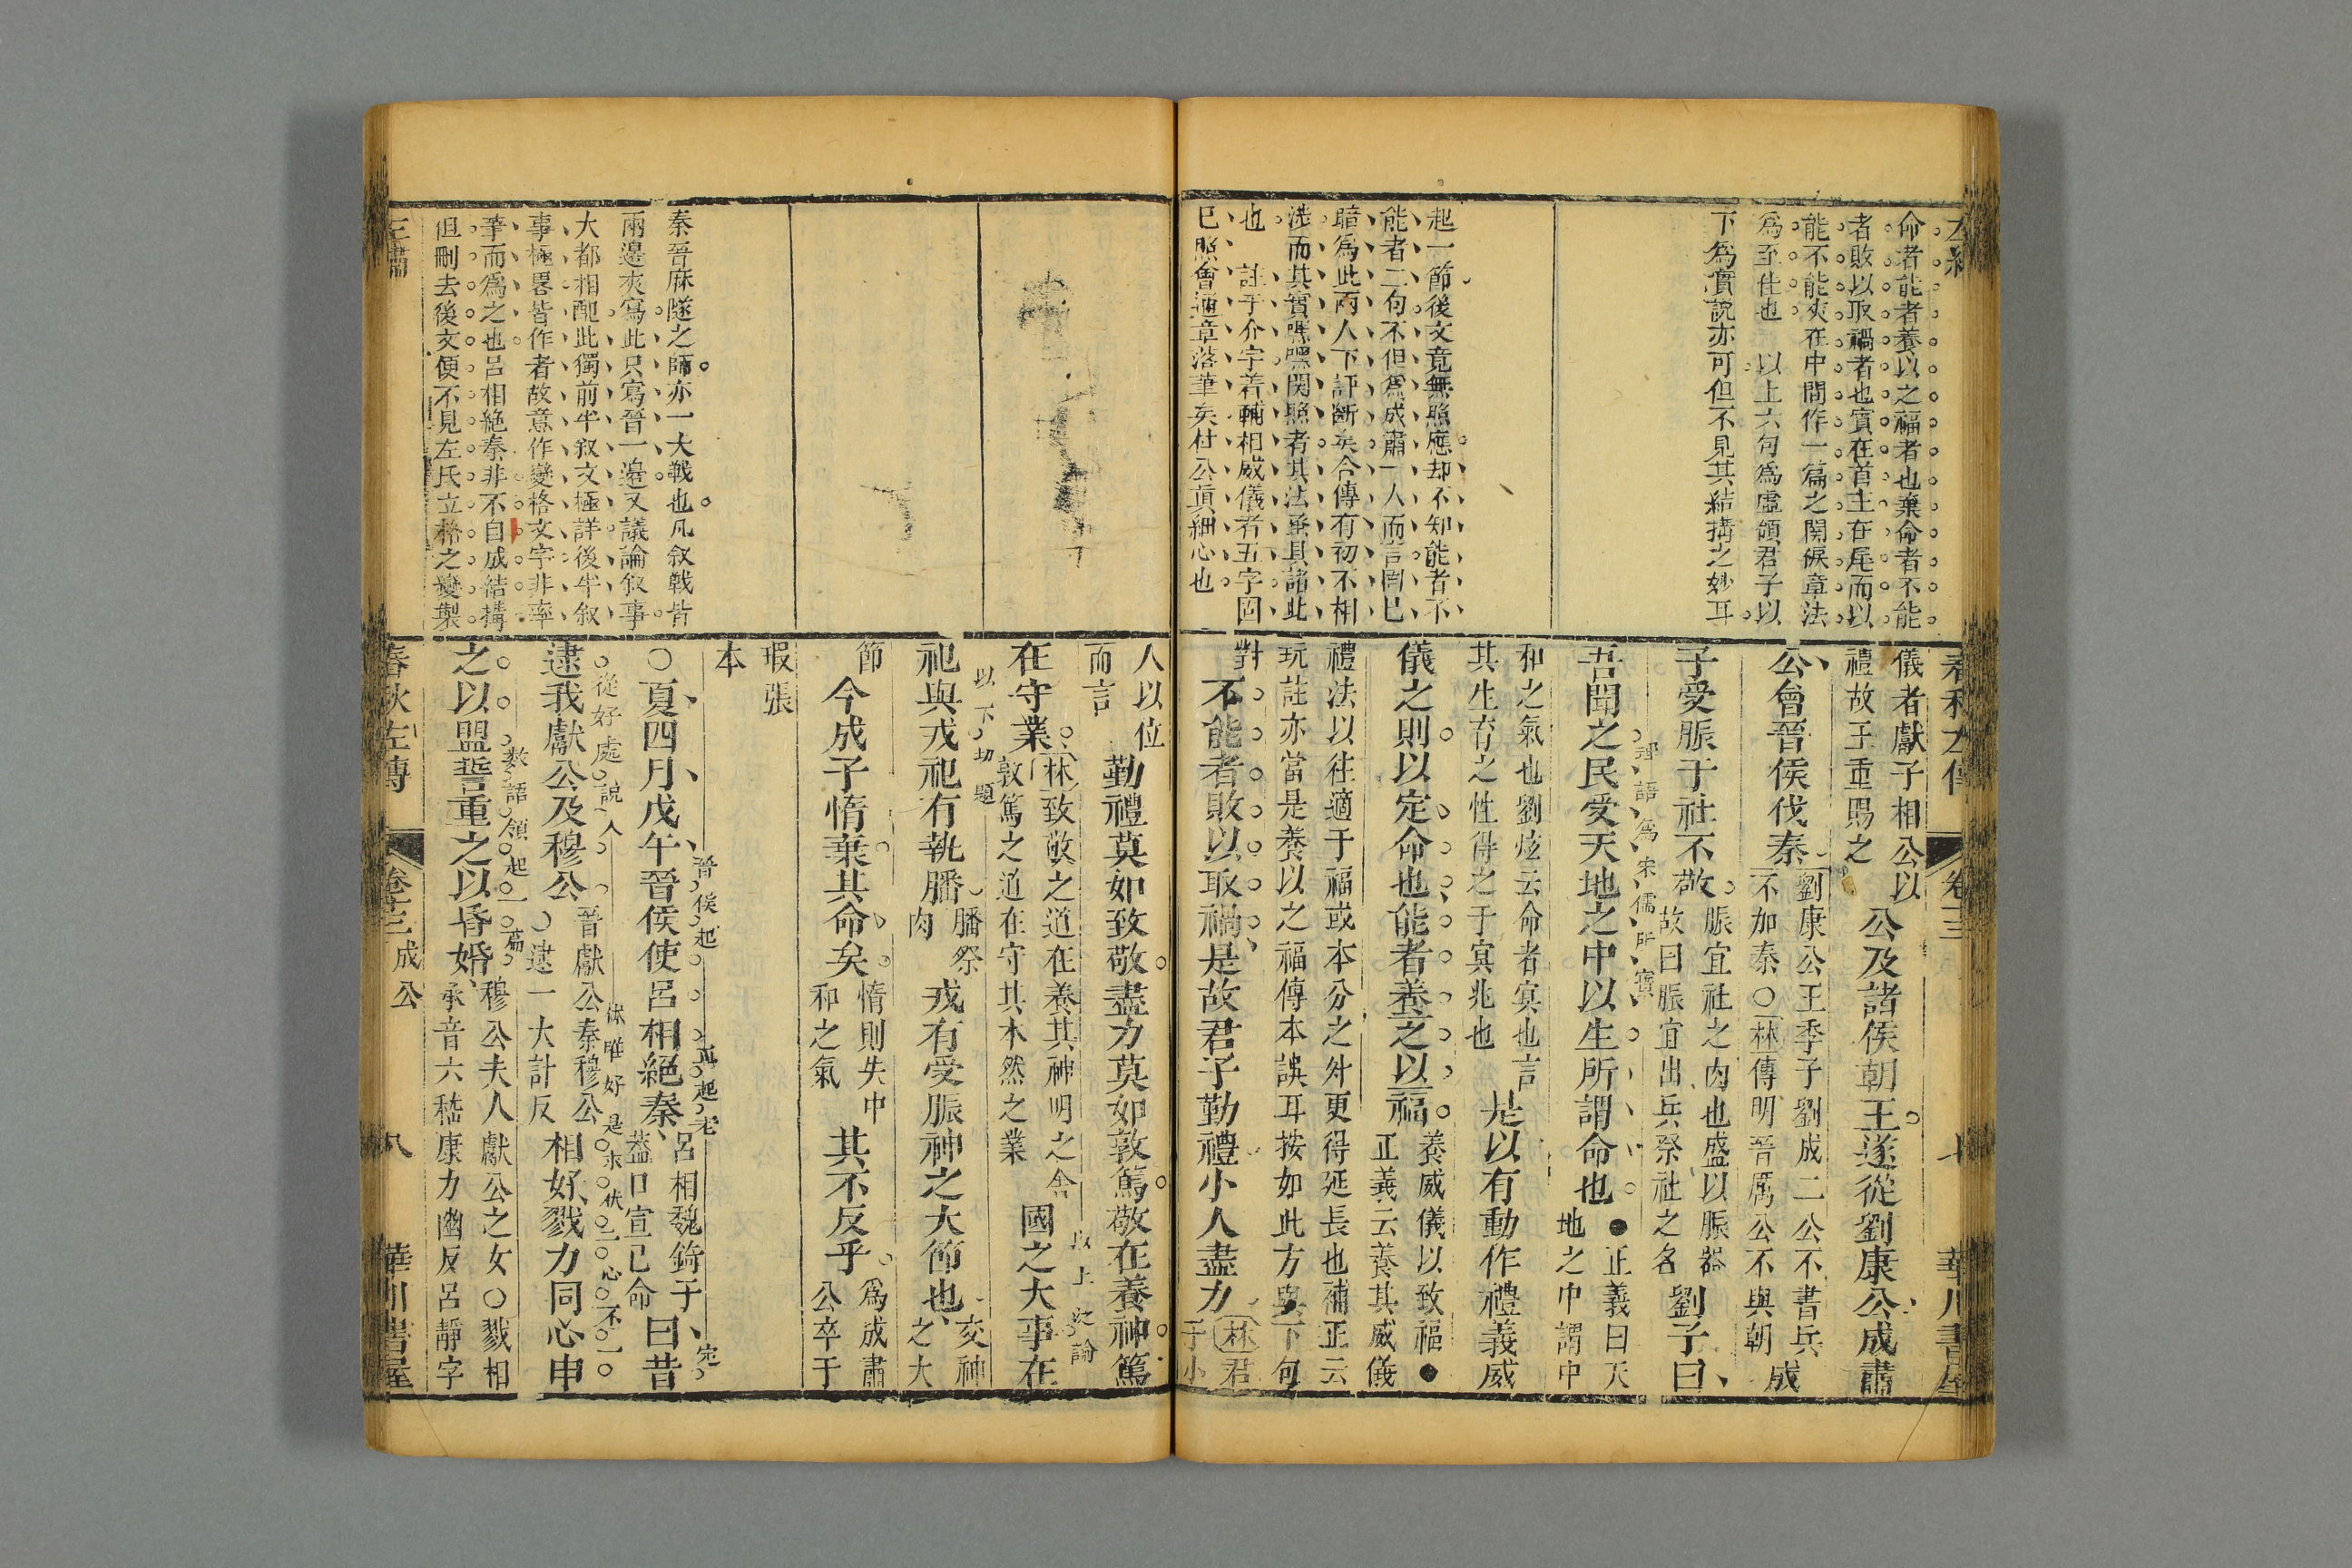 命者能者養以之福者也棄命者不能
者敗以取禍者也賓在首主在尾而以
能不能夾在中間作一篇之関鍵章法
為至佳也 以上六句爲虛頌君子以
下爲實説亦可但不見其結搆之妙耳
起一節後文竟無照應却不知能者不
能者二句不但爲成肅一人而言固已
暗爲此兩人下評斷矣合傳有初不相
涉而其實嘿嘿関照者其法垂具諸此
也 註于介字着輔相威儀者五字固
已照會通章落筆矣杜公真細心也
儀者獻子相公以
禮故王重賜之
公及諸侯朝王遂從劉康公成肅
公會晉侯伐秦
劉康公王季子劉成二公不書兵
不加秦○林傳明晉厲公不與朝
成
子受脤于社不敬
脤宜社之肉也盛以脤器
故曰脤宜出兵祭社之名
劉子曰
吾聞之民受天地之中以生所謂命也
●正義曰天
地之中謂中
和之氣也劉炫云命者冥也言
其生育之性得之于冥兆也
是以有動作禮義威
儀之則以定命也能者養之以福
養威儀以致福●
正義云養其威儀
禮法以往適于福或本分之外更得延長也補正云
玩註亦當是養以之福傳本誤耳按如此方與下句
對
不能者敗以取禍是故君子勤禮小人盡力
林君
子小
人以位
而言
勤禮莫如致敬盡力莫如敦篤敬在養神篤
在守業
林致敬之道在養其神明之舍
敦篤之道在守其本然之業
以上泛論
國之大事在
以下切題
祀與戎祀有執膰
膰祭
肉
戎有受脤神之大節也
交神
之大
節
今成子惰棄其命矣
惰則失中
和之氣
其不反乎
爲成肅
公卒于
瑕張
本
晉侯起
○夏四月戊午晉侯使呂相絶秦
呂相魏錡子
葢口宣己命
曰昔
從好處説入
逮我獻公及穆公
晉獻公秦穆公
○逮一大計反
相好戮力同心申
數語領起一篇
之以盟誓重之以昏婚
穆公夫人獻公之女○戮相
承音六嵇康力幽反呂靜字
秦晉麻隧之師亦一大戰也凡敘戰皆
兩邊夾寫此只寫晉一邊又議論敘事
大都相配此獨前半敘文極詳後半敘
事極畧皆作者故意作變格文字非率
筆而爲之也呂相絶秦非不自成結搆
但刪去後文便不見左氏立格之變製
春秋左傳
卷十三 成公
八
華川書屋